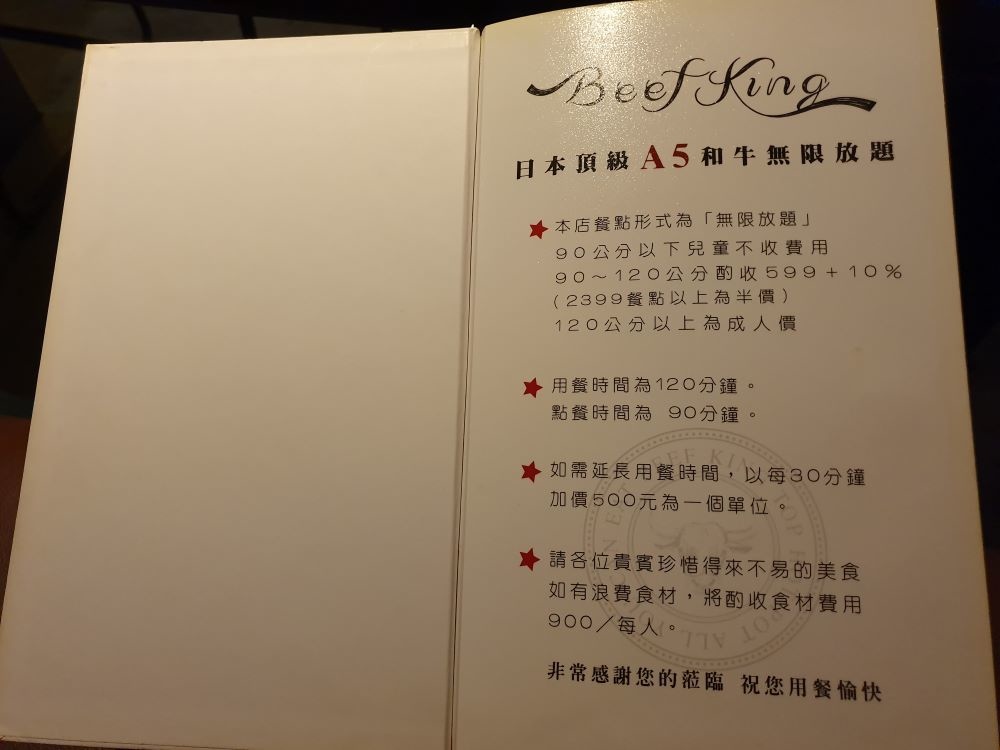 Beef King
日本頂級A5和牛無限放題
本店餐點形式為「無限放題」
90公分以下兒童不收費用
90~120公分酌收599+10%
(2399餐點以上為半價)
120公分以上為成人價
用餐時間為120分鐘。
點餐時間為 90分鐘。
如需延長用餐時間,以每30分鐘
加價500元為一個單位。
請各位貴賓珍惜得來不易的美食
如有浪費食材,將酌收食材費用
900/每人。
非常感謝您的蒞臨 祝您用餐愉快